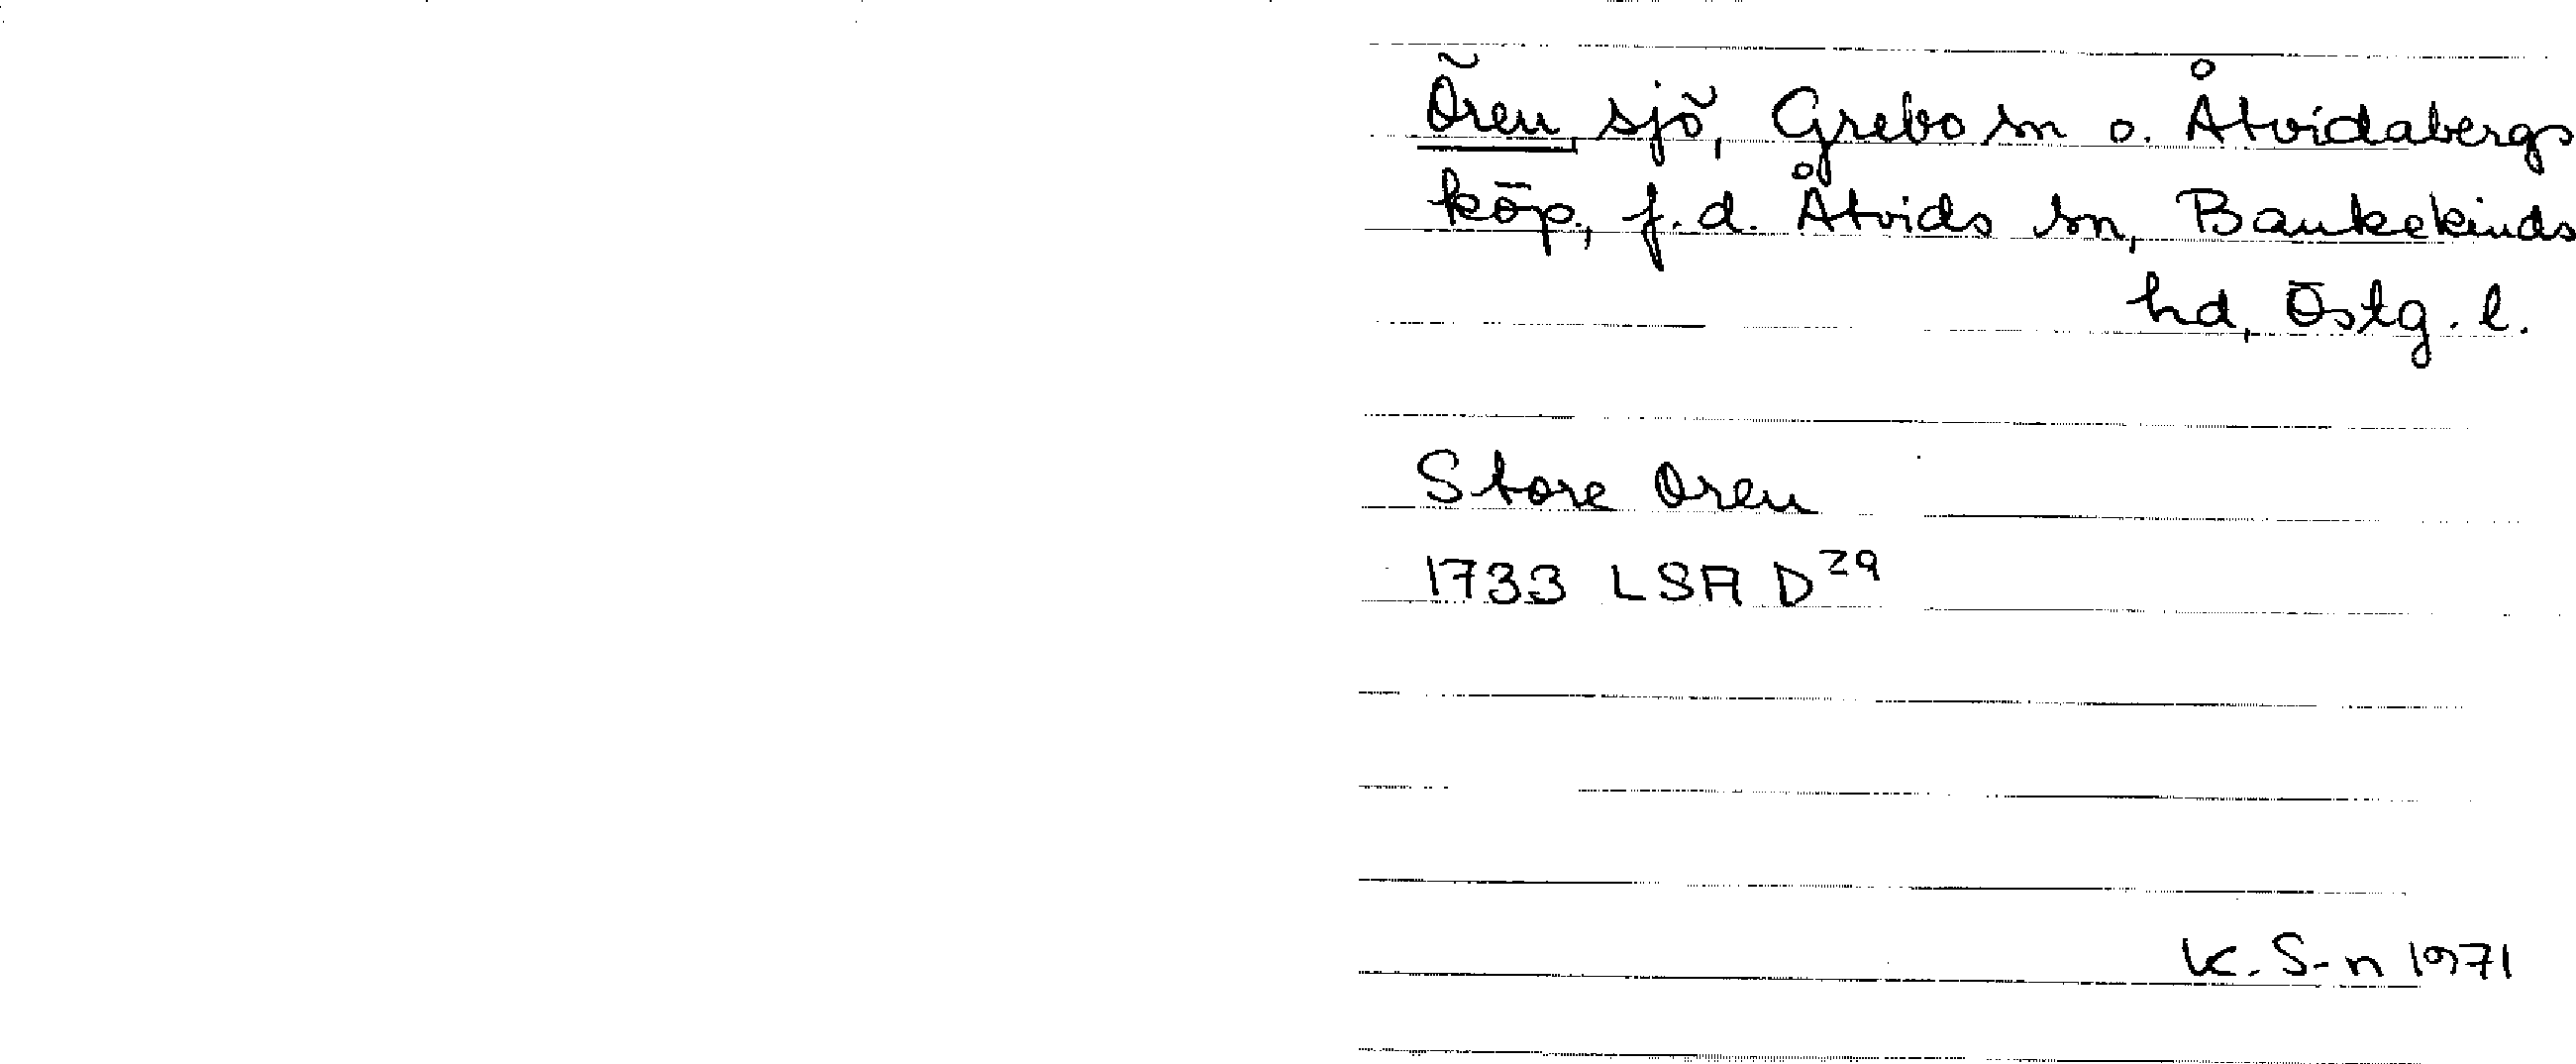 Ören, sjö, Grebo sn o. Åtvidabergs
köp., f.d. Åtvids sn, Bankekinds
hd, Östg. l.
Store Oren
1733 LSA D²⁹
K. S-n 1971